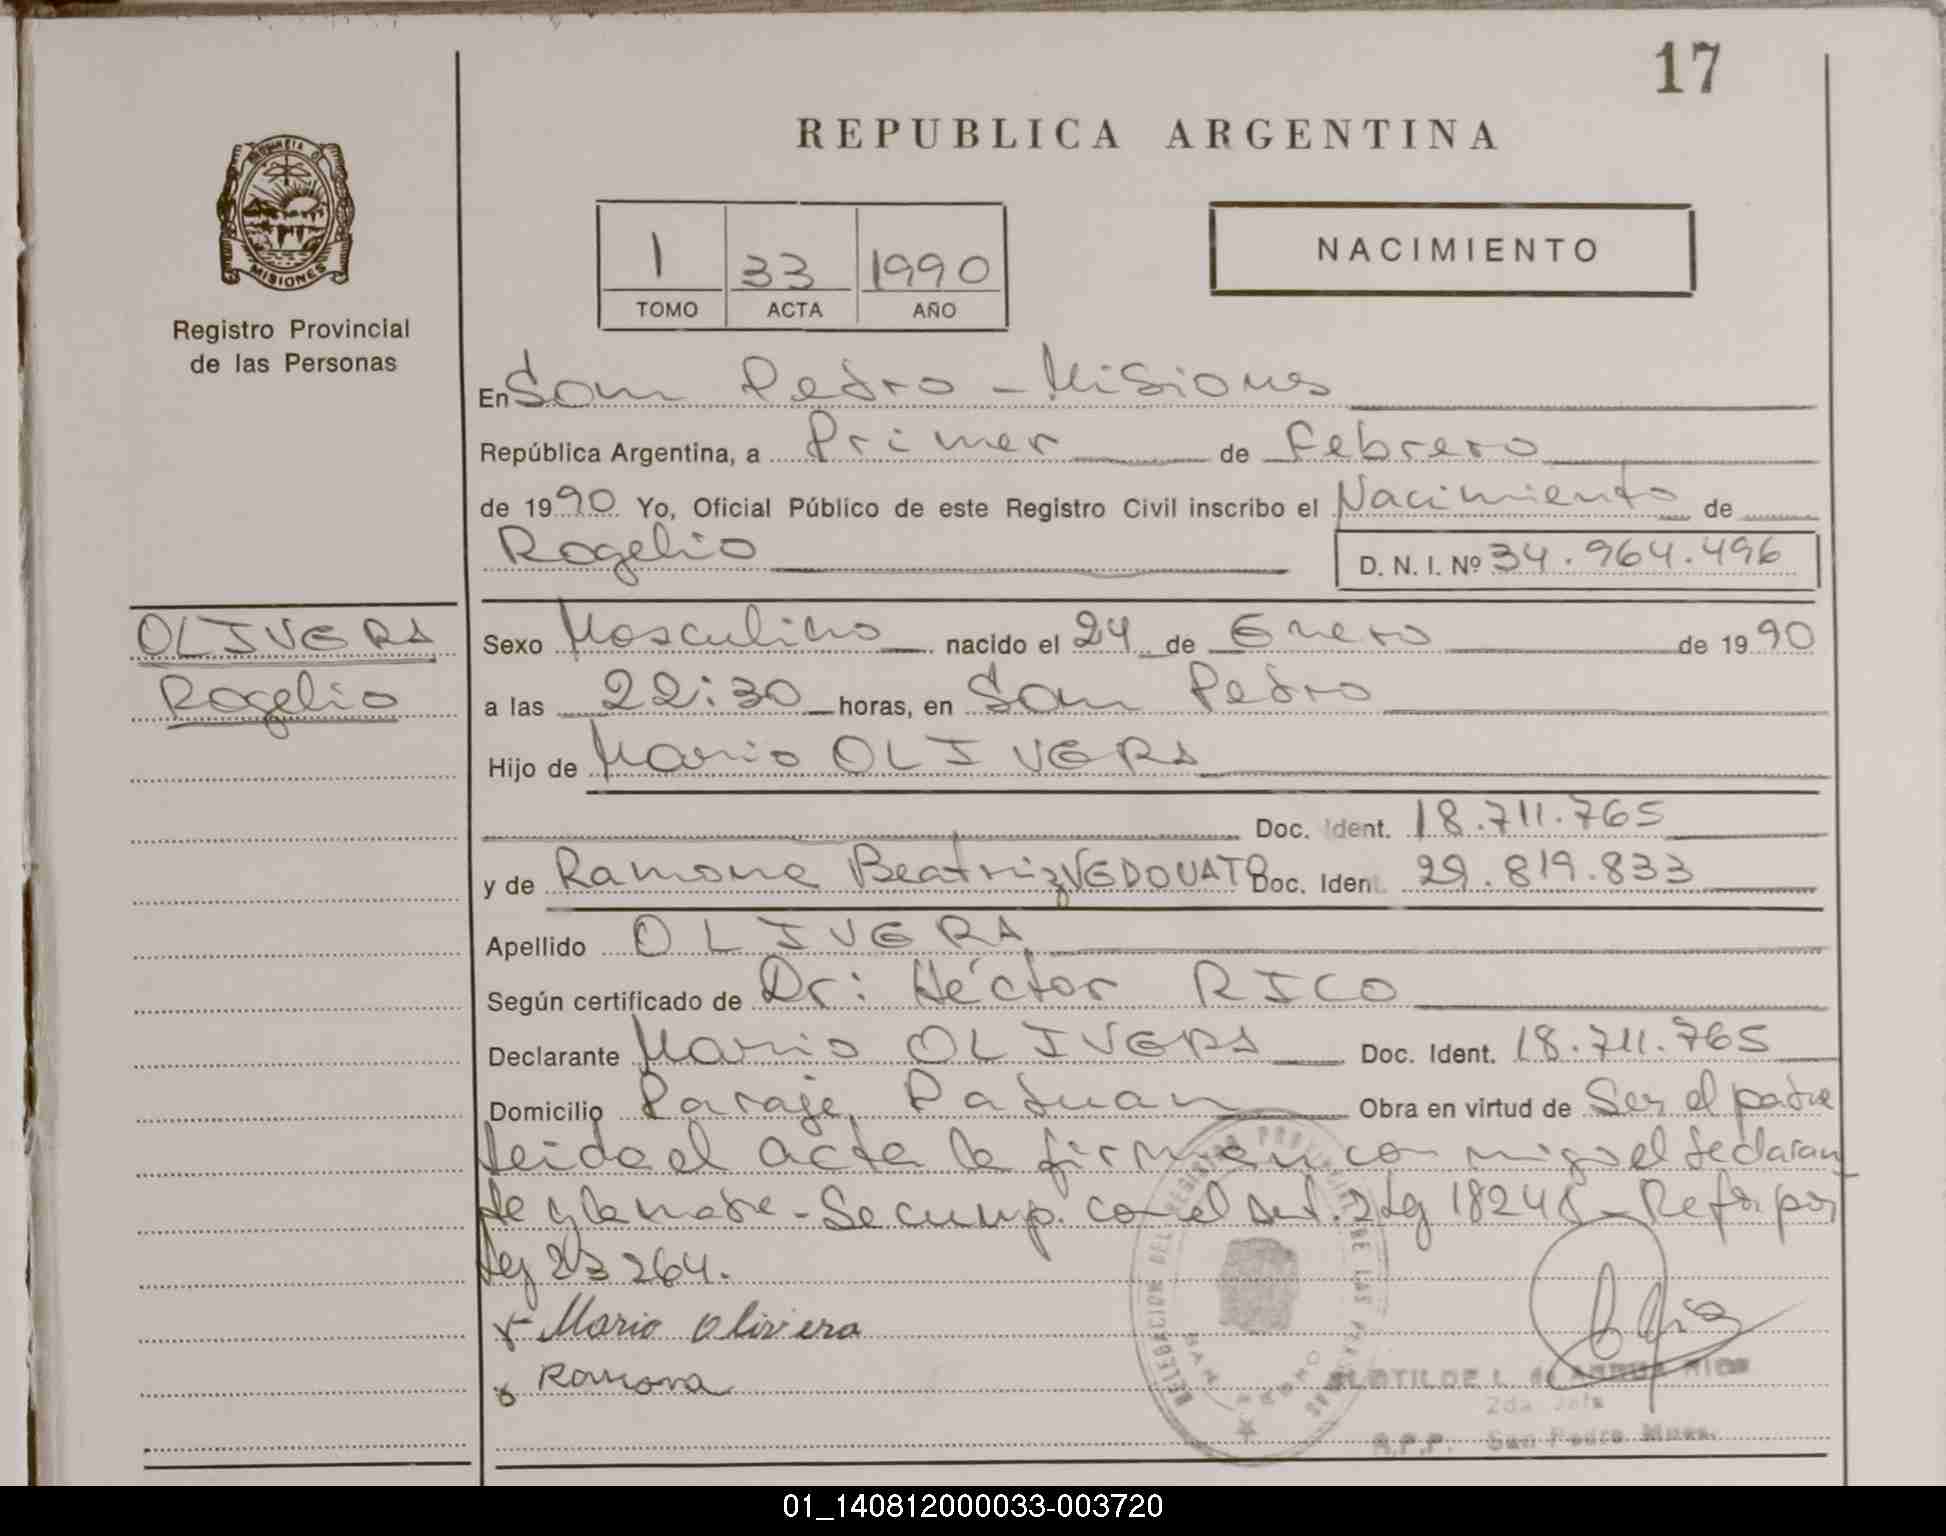 17
REPUBLICA ARGENTINA
PROVINCIA D
MISIONES
Registro Provincial
de las Personas
1 33 1990
TOMO ACTA AÑO
NACIMIENTO
En San Pedro - Misiones
República Argentina, a Primer de Febrero
de 1990 Yo, Oficial Público de este Registro Civil inscribo el Nacimiento de
Rogelio D. N. I. Nº 34.964.496
OLIVERA
Rogelio
Sexo Masculino nacido el 24 de Enero de 1990
a las 22:30 horas, en San Pedro
Hijo de Mario OLIVERA
Doc. Ident. 18.711.765
y de Ramona Beatriz VEDOVATO Doc. Ident. 29.819.833
Apellido OLIVERA
Según certificado de Dr: Héctor RICO
Declarante Mario OLIVERA Doc. Ident. 18.711.765
Domicilio Paraje Paduan Obra en virtud de Ser el padre
leida el acta la firman con migo el declaran
te y la madre - Se cump. con el Art. 2 Ley 18248 - Ref. por
Ley 23264.
x Mario Olivera
x Ramona
DELEGACION DEL REGISTRO PROVINCIAL DE LAS PERSONAS
SAN PEDRO
CLOTILDE L. de
2da Jefe
R.P.P. San Pedro Mnes.
01_140812000033-003720